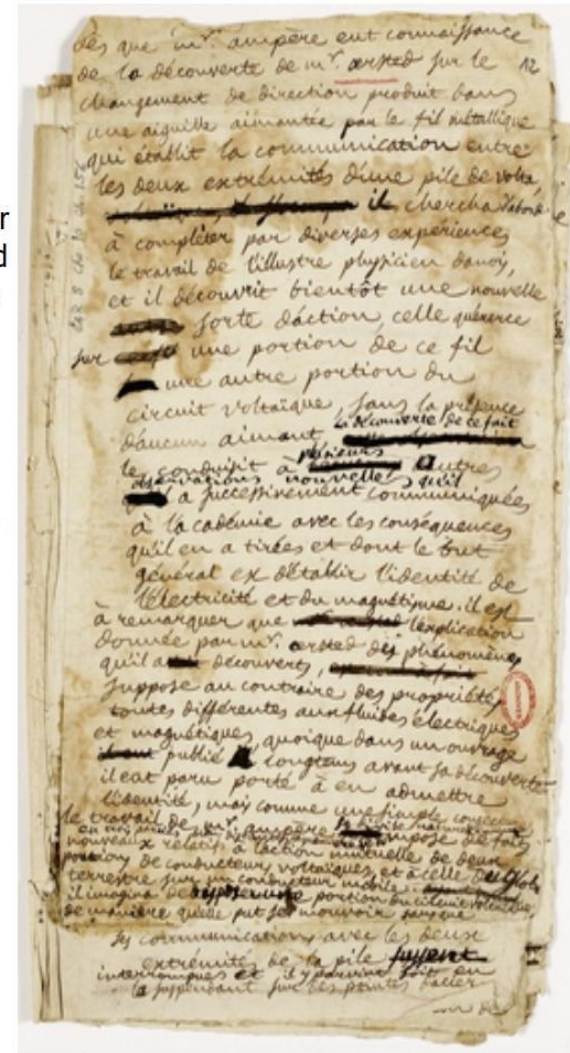 r
d
dès que mr. ampère eut connaissance
de la découverte de mr. œrsted sur le 12
changement de direction produit dans
une aiguille aimantée par le fil métallique
qui établit la communication entre
les deux extrémités d'une pile de volta,
il chercha d'abord
à compléter par diverses expériences
le travail de l'illustre physicien danois,
et il découvrit bientôt une nouvelle
sorte d'action, celle qu'exerce
sur une portion de ce fil
une autre portion du
circuit voltaïque, sans la présence
d'aucun aimant, la découverte de ce fait
le conduisit à plusieurs autres
observations nouvelles qu'il
a successivement communiquées
à l'académie avec les conséquences
qu'il en a tirées et dont le but
général est d'établir l'identité de
l'électricité et du magnétisme. il est
à remarquer que l'explication
donnée par mr. œrsted des phénomènes
qu'il a découverts,
suppose au contraire des propriétés
toutes différentes aux fluides électriques
et magnétiques, quoique dans un ouvrage
publié longtems avant sa découverte
il eat paru porté à en admettre
l'identité, mais comme une simple conjecture
le travail de mr. ampère se
nouveaux relatifs à l'action mutuelle de deux
portions de conducteurs voltaïques, et à celle du globe
terrestre sur un conducteur mobile.
il imagina de portion du circuit voltaïque
de manière qu'elle put se mouvoir sans que
ses communications avec les deux
extrémités de la pile fussent
interrompues et il y parvint soit en
la suspendant sur des pointes